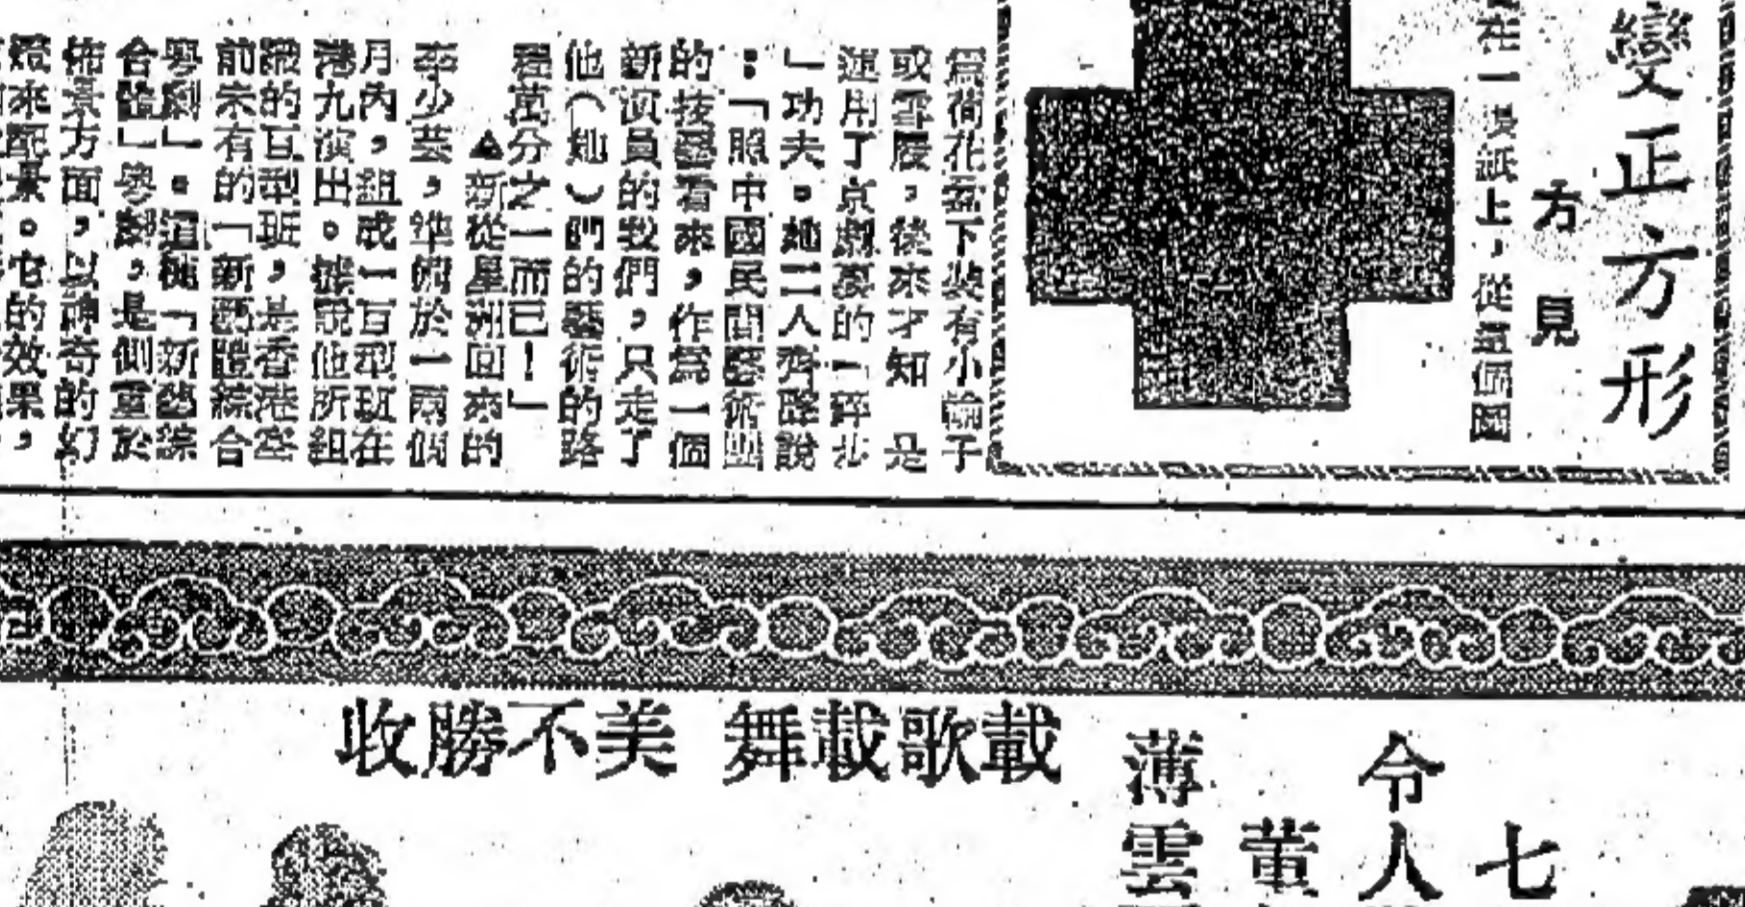 變正方形
方見
在一張紙上，從這個圖
為荷花瓣下裝有小輪子
或雪屐，後來才知 是
運用了京劇裏的「碎步
」功夫。她二人齊聲說
：「照中國民間藝術團
的技藝看來，作為一個
新演員的我們，只走了
他（她）們的藝術的路
程萬分之一而已！」
▲新從星洲回來的
李少芸，準備於一兩個
月內，組成一巨型班在
港九演出。據說他所組
織的巨型班，是香港空
前未有的「新藝體綜合
粵劇」。這種「新藝綜
合體」粵劇，是側重於
佈景方面，以神奇的幻
燈來配景。它的效果，
載歌載舞 美不勝收
七
令人
董
薄雲